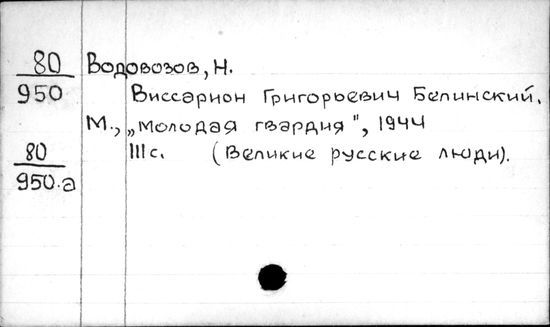 80 Водовозов, Н.
950 Виссарион Григорьевич Белинский.
М., „Молодая гвардия", 1944
80 111 с. (Великие русские люди).
950.а